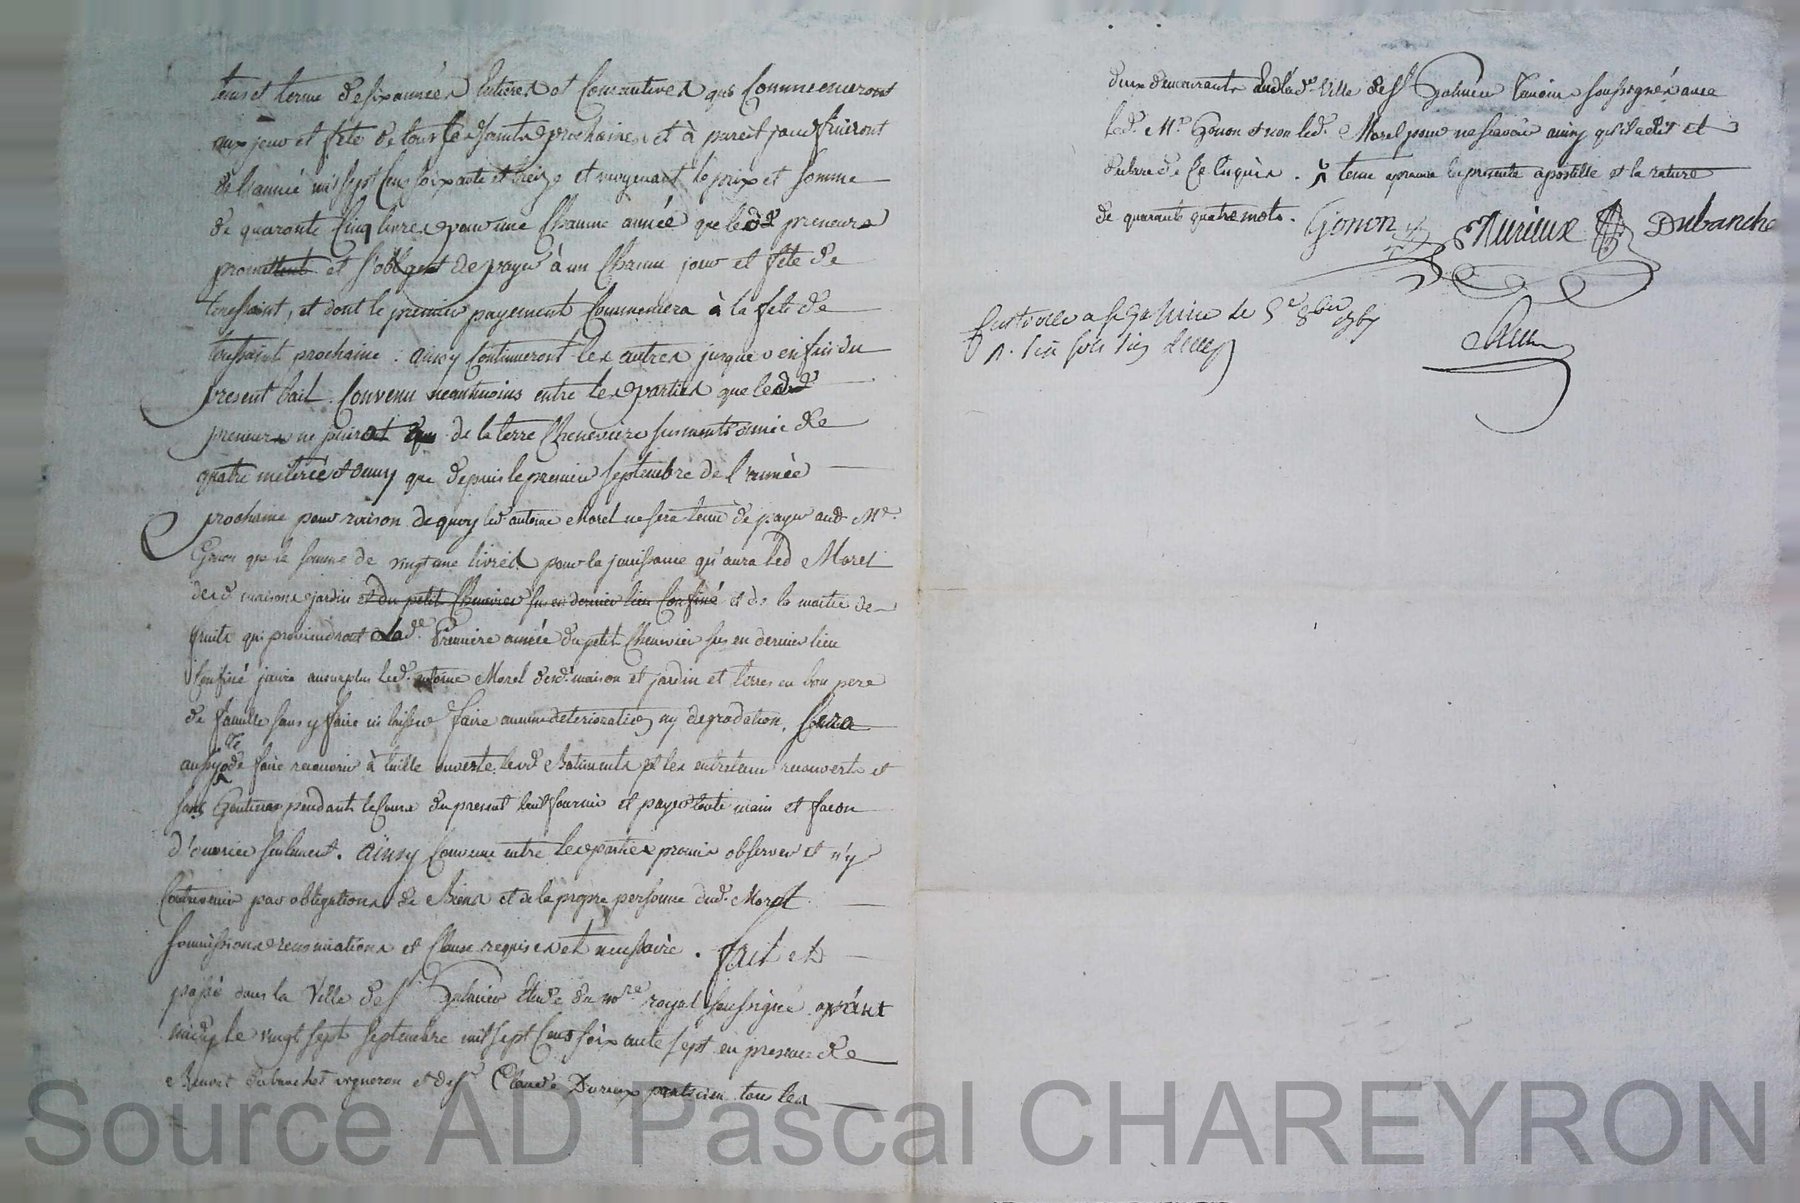 tems et terme de six années Entieres et Consecutives qui Commenceront
aux jour et fête de tous les saints prochaine, et à pareil jour finiront
de l'année mil sept cens soixante et treize et moyenant le prix et somme
de quarante Cinq livres pour une Chacune année que lesd preneurs
promettent et s'obligent de payer à un Chacun jour et fête de
toussaint, et dont le premier payement Commencera à la fête de
toussaint prochaine. ainsy Continueront les autres jusques enfin du
present bail. Convenu neantmoins entre les parties que lesd
preneurs ne jouiront de la terre Cheneviere susmentionnée de
quatre meterée et demy que depuis le premier septembre de l'année
prochaine pour raison de quoy led antoine Morel ne sera tenu de payer aud Mr.
Gonon que la somme de vingt une livres pour la jouissance qu'aura led Morel
desd maisons jardin et du petit Chenevier sus en dernier lieu Confiné et de la moitié de
fruits qui proviendront lad. Premiere année du petit Chenevier sus en dernier lieu
Confiné jouira ausurplus led. antoine Morel desd. maison et jardin et terres en bon pere
de famille sans y faire ni laisser faire aucune deterioration ny degradation, sera
aussy de faire recouvrir à tuille ouverte lesd Batiments et les entretenir recouverts et
sans Goutieres pendant le Cours du present bail fournir et payer toute main et facon
d'ouvrier seulement. ainsy Convenu entre les parties promis observer et n'y
Contrevenir par obligations de Biens et de la propre personne dud. Morel
soumissions renonciations et Clause requises et necessaire. fait et
passé dans la Ville de St Galmier Etude du nore royal soussigné aprés
midy le vingt sept septembre mil sept Cens soixante sept en presence de
Benoit dubanchet vigneron et de Sr Claude Durieux praticien tous les
deux demeurants en lad. Ville de St Galmier temoins soussignés avec
led. Mr Gonon et non led. Morel pour ne sçavoir ainsy qu'il a dit et
declaré de Ce Enquis. tenu aprouver la presente apostille et la rature
de quarante quatre mots. Gonon Durieux Dubanche
Controllé a St Galmier le 5e 8bre 1767
R.